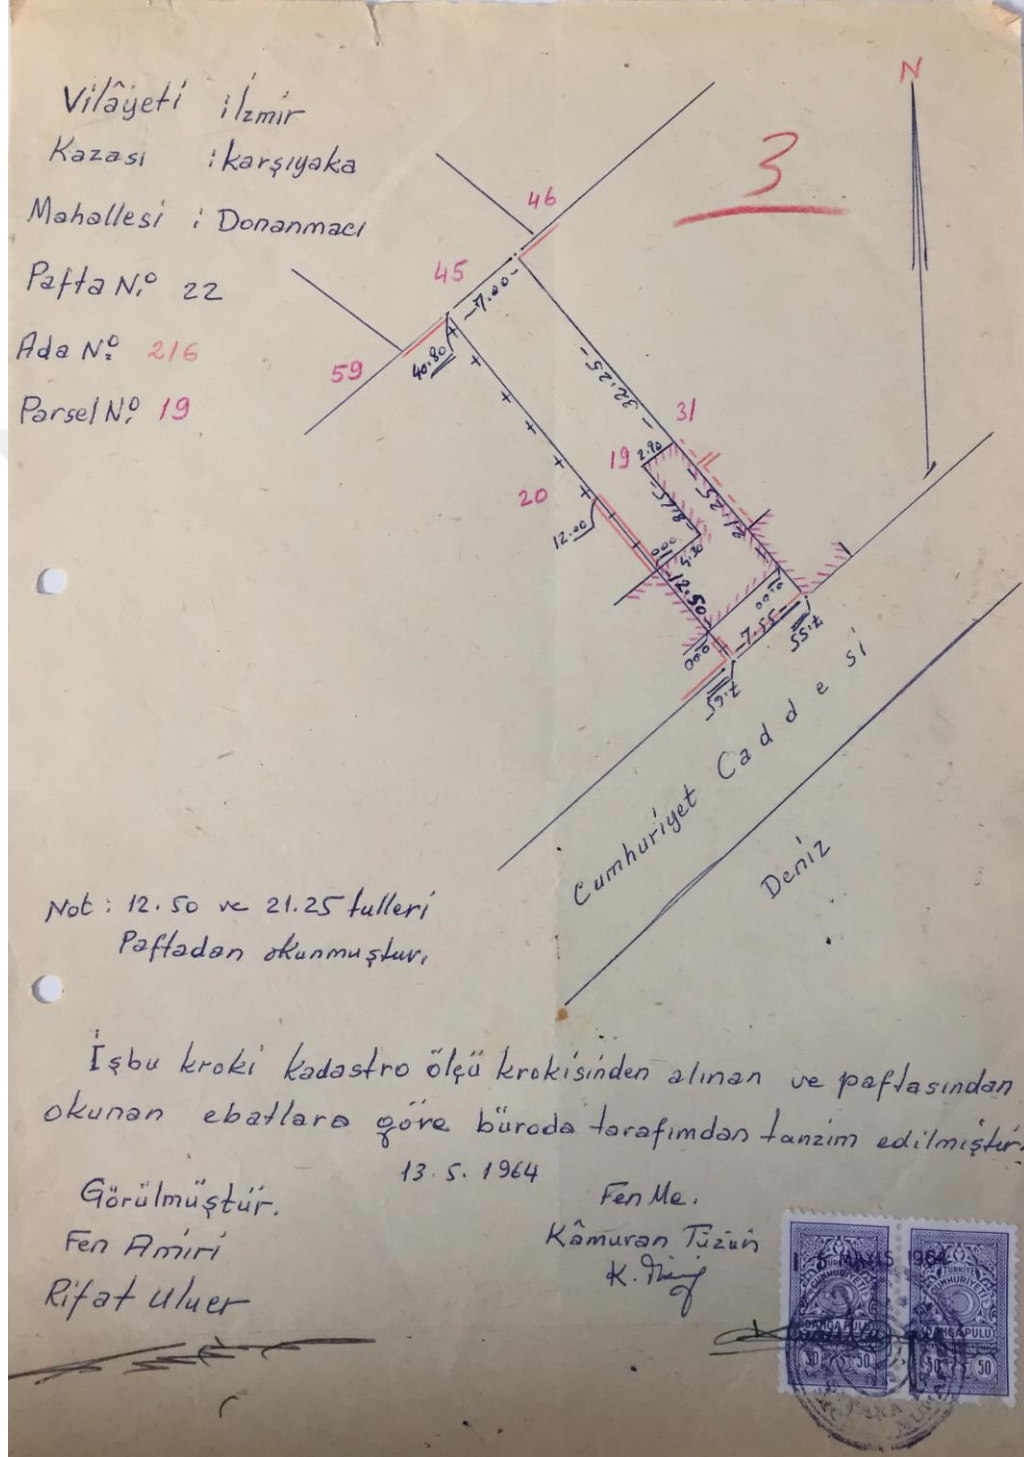 Vilâyeti : İzmir
Kazası : Karşıyaka
Mahallesi : Donanmacı
Pafta No. 22
Ada No. 216
Parsel No. 19
N
3
46
45
-7.00-
40.80
59
-32.25-
31
2.90
19
20
-8.65-
21.25-
12.00
00.0
5.30
-12.50
00.0
-7.55-
00.0
7.55
7.65
Cumhuriyet Caddesi
Deniz
Not : 12.50 ve 21.25 tulleri
Paftadan okunmuştur.
İşbu kroki kadastro ölçü krokisinden alınan ve paftasından
okunan ebatlara göre büroda tarafımdan tanzim edilmiştir.
13.5.1964
Görülmüştür.
Fen Amiri
Rifat Uluer
Fen Me.
Kâmuran Tüzün
MAYIS 1964
TÜRKİYE CUMHURİYETİ
DAMGA PULU
50 50
TÜRKİYE CUMHURİYETİ
DAMGA PULU
50 50